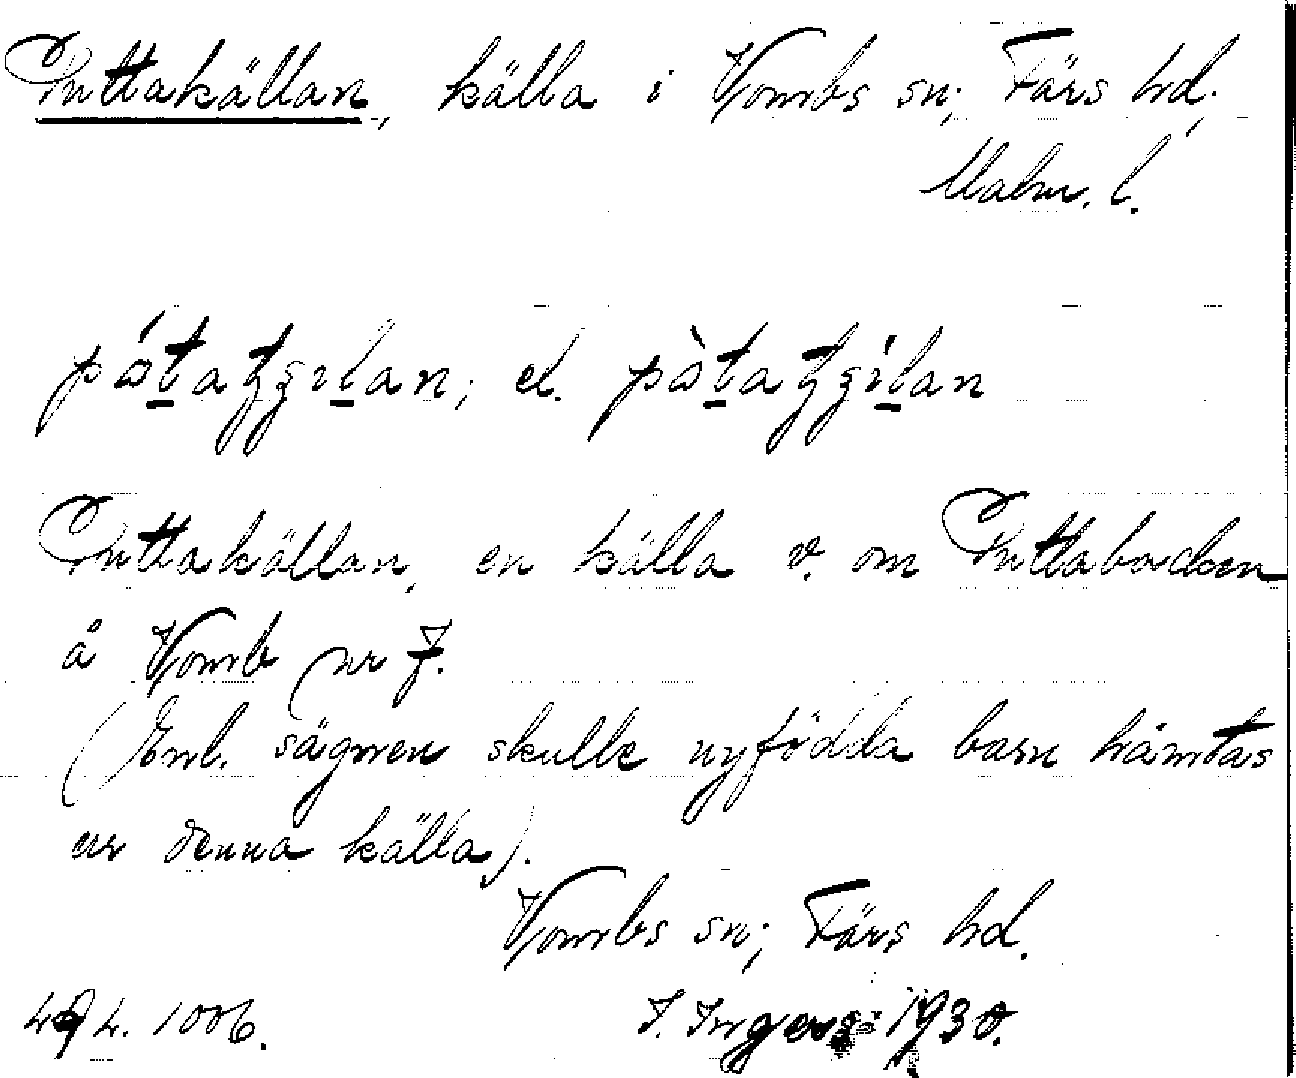 Puttakällan, källa i Vombs sn; Färs hd,
Malm. l.
el.
Puttakällan, en källa v. om Puttabacken
å Vomb nr 7.
(Enl. sägnen skulle nyfödda barn hämtas
ur denna källa).
Vombs sn; Färs hd.
1006. I. Ingers 1930.